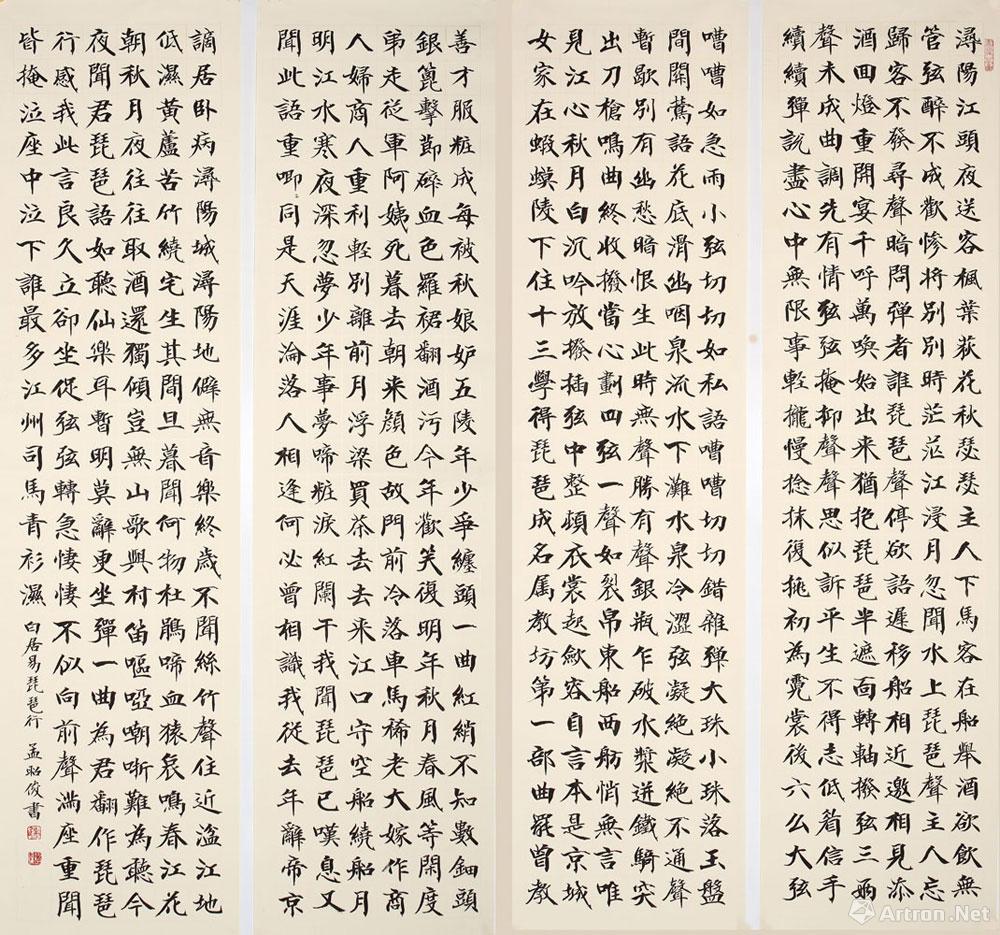 潯陽江頭夜送客楓葉荻花秋瑟瑟主人下馬客在船舉酒欲飲無
管弦醉不成歡慘將別別時茫茫江浸月忽聞水上琵琶聲主人忘
歸客不發尋聲暗問彈者誰琵琶聲停欲語遲移船相近邀相見添
酒回燈重開宴千呼萬喚始出来猶抱琵琶半遮面轉軸撥弦三兩
聲未成曲調先有情弦弦掩抑聲聲思似訴平生不得志低眉信手
續續彈說盡心中無限事輕攏慢捻抹復挑初為霓裳後六么大弦
嘈嘈如急雨小弦切切如私語嘈嘈切切錯雜彈大珠小珠落玉盤
間關鶯語花底滑幽咽泉流水下灘水泉冷澀弦凝絕凝絕不通聲
暫歇別有幽愁暗恨生此時無聲勝有聲銀瓶乍破水漿迸鐵騎突
出刀槍鳴曲終收撥當心劃四弦一聲如裂帛東船西舫悄無言唯
見江心秋月白沉吟放撥插弦中整頓衣裳起斂容自言本是京城
女家在蝦蟆陵下住十三學得琵琶成名属教坊第一部曲罷曾教
善才服粧成每被秋娘妒五陵年少爭纏頭一曲紅綃不知數鈿頭
銀篦擊節碎血色羅裙翻酒污今年歡笑復明年秋月春風等閑度
弟走從軍阿姨死暮去朝来顏色故門前冷落車馬稀老大嫁作商
人婦商人重利輕別離前月浮梁買茶去去来江口守空船繞船月
明江水寒夜深忽夢少年事夢啼粧淚紅闌干我聞琵琶已嘆息又
聞此語重唧〻同是天涯淪落人相逢何必曾相識我從去年辭帝京
謫居卧病潯陽城潯陽地僻無音樂終歲不聞絲竹聲住近湓江地
低濕黃蘆苦竹繞宅生其間旦暮聞何物杜鵑啼血猿哀鳴春江花
朝秋月夜往往取酒還獨傾豈無山歌與村笛嘔啞嘲哳難為聽今
夜聞君琵琶語如聽仙樂耳暫明莫辭更坐彈一曲為君翻作琵琶
行感我此言良久立卻坐促弦弦轉急悽悽不似向前聲滿座重聞
皆掩泣座中泣下誰最多江州司馬青衫濕
白居易琵琶行 孟昭俊書
Artron.Net